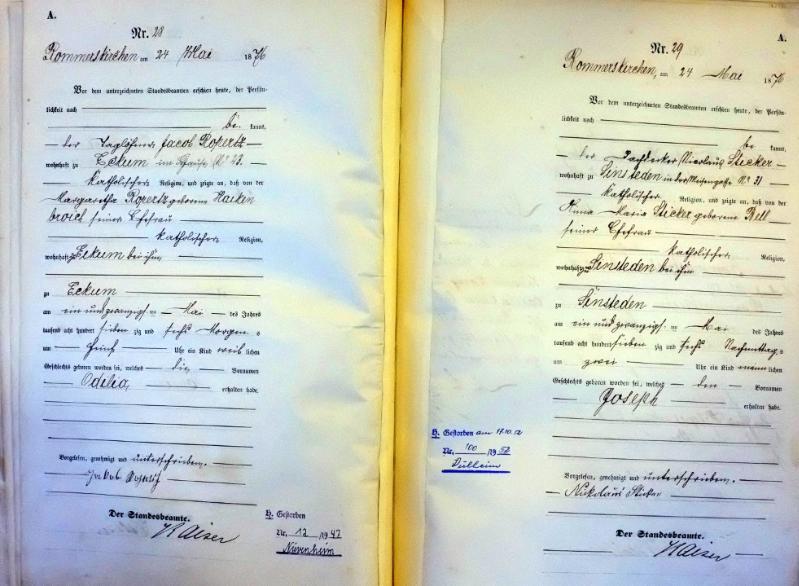 A.
Nr. 28
Rommerskirchen am 24 Mai 1876
Vor dem unterzeichneten Standesbeamten erschien heute, der Persön-
lichkeit nach
be kannt,
der Taglöhner Jacob Ropertz
wohnhaft zu Eckum im Hause No 23.
katholischer Religion, und zeigte an, daß von der
Margaretha Ropertz geborene Hacken
broich seiner Ehefrau
katholischer Religion,
wohnhaft zu Eckum bei ihm
zu Eckum
am ein und zwanzigsten Mai des Jahres
tausend acht hundert sieben zig und sechs Morgens
um fünf Uhr ein Kind weib lichen
Geschlechts geboren worden sei, welches die Vornamen
Odilia,
erhalten habe.
Vorgelesen, genehmigt und unterschrieben.
Jakob
Der Standesbeamte.
Kaiser
H. Gestorben
Nr. 12 / 1947
A.
Nr. 29
Rommerskirchen, am 24 Mai 1876
Vor dem unterzeichneten Standesbeamten erschien heute, der Persön-
lichkeit nach
be kannt,
der Dachdecker Nicolaus Sticker
wohnhaft zu Sinsteden in der No 31
katholischer Religion, und zeigte an, daß von der
Anna Maria Sticker geborene Bell
seiner Ehefrau
katholischer Religion,
wohnhaft zu Sinsteden bei ihm
zu Sinsteden
am ein und zwanzigsten Mai des Jahres
tausend acht hundert sieben zig und sechs Nachmittags
um zwei Uhr ein Kind männ lichen
Geschlechts geboren worden sei, welches den Vornamen
Joseph
erhalten habe.
H. Gestorben am 17.10.52
Nr. 100 / 1952
Vorgelesen, genehmigt und unterschrieben.
Nikolaus Sticker
Der Standesbeamte.
Kaiser